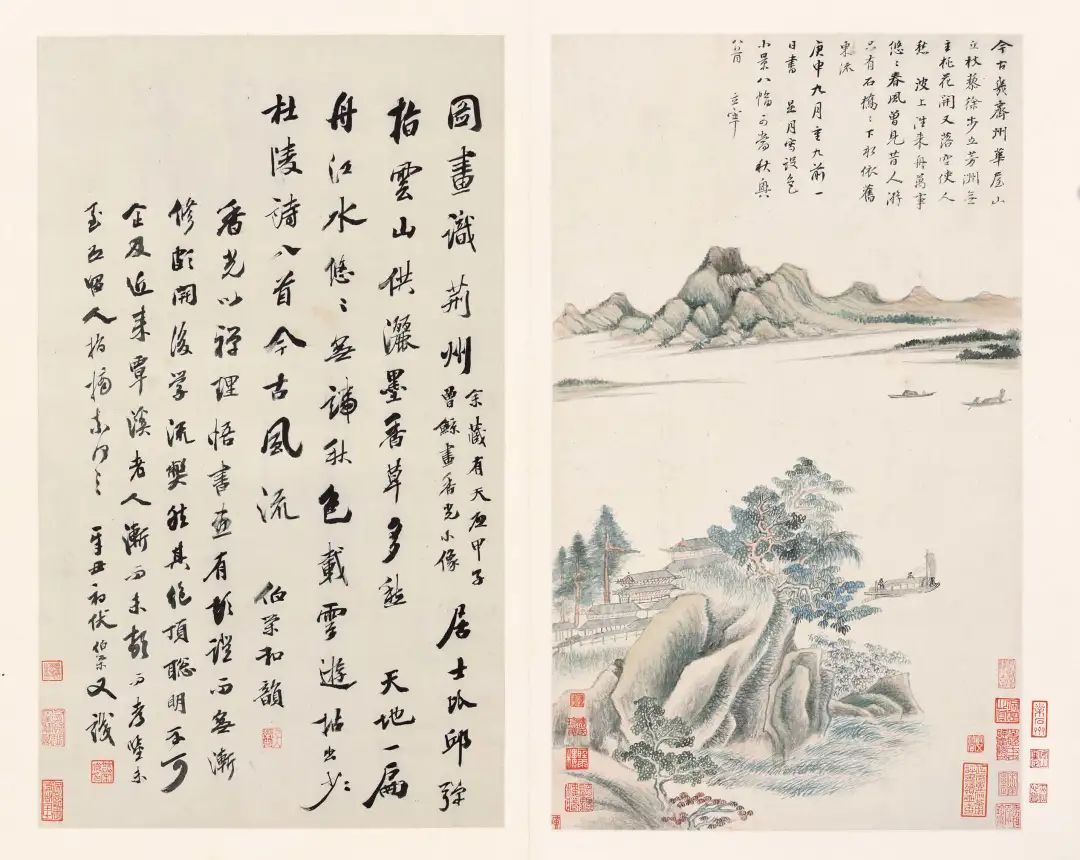 今古幾齊州華屋山
丘杖藜徐步立芳洲無
主桃花開又落空使人
愁 波上往來舟萬事
悠〻春風曾見昔人游
只有石橋〻下水依舊
東流
庚申九月重九前一
日書 是月寫設色
小景八幅可當秋興
八首 玄宰
圖畫識荊州
余藏有天啟甲子
曾鯨畫香光小像
居士故邱弥
指雲山供灑墨香草多愁 天地一扁
舟江水悠〻無端秋色載雲遊拈出少〻
杜陵詩八首今古風流 伯榮和韻
香光以禪理悟書畫有頓證而無漸
修頗開後學流弊然其絕頂聰明不可
企及近来覃溪老人漸而未頓而考證亦
人指摘 辛丑初伏伯榮又識